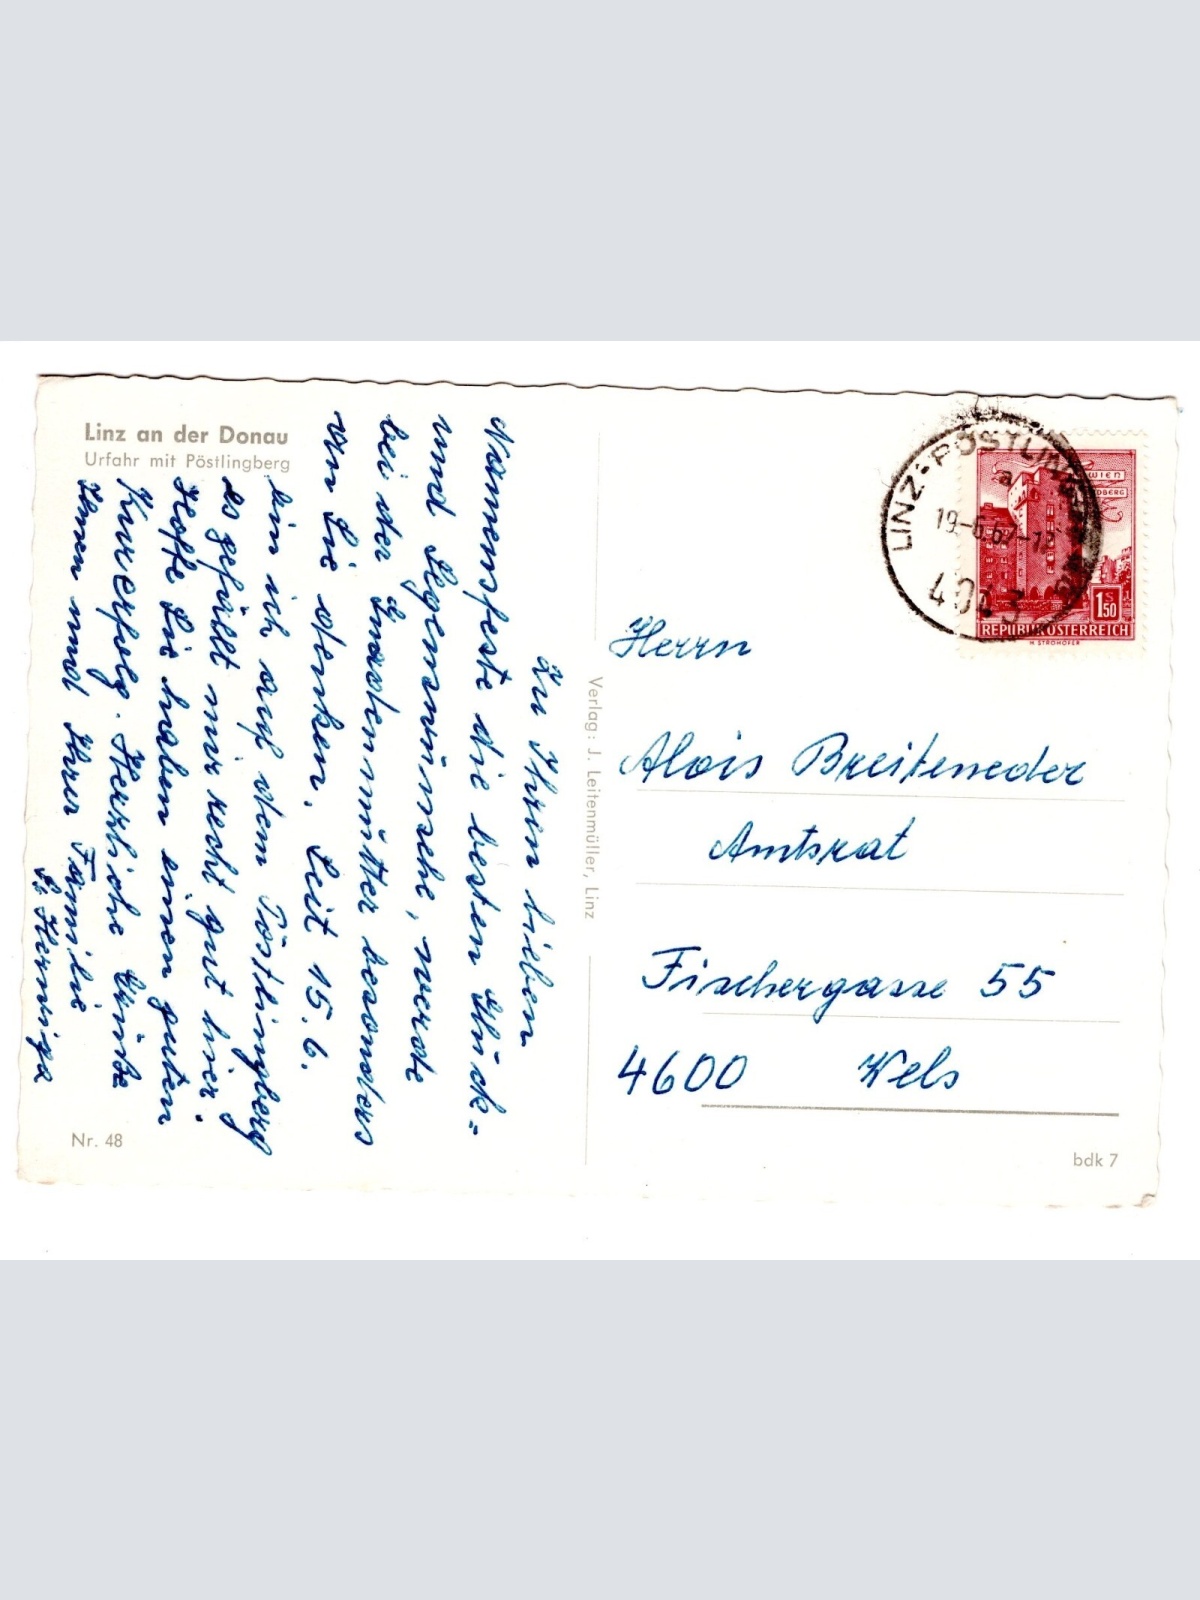 Linz an der Donau
Urfahr mit Pöstlingberg
Zu Ihren lieben
Namensfeste die besten Glück-
und Segenswünsche, werde
bei der Gnadenmutter besonders
an Sie denken. Seit 15. 6.
bin ich auf dem Pöstlingberg
es gefällt mir recht gut hier.
Hoffe Sie haben einen guten
Kurerfolg. Herzliche Grüße
Ihnen und Ihrer Familie
Nr. 48
Verlag: J. Leitenmüller, Linz
LINZ-PÖSTLINGBERG
a
WIEN
1 S 50
REPUBLIK ÖSTERREICH
H. STROHOFER
Herrn
Alois Breiteneder
Amtsrat
Fischergasse 55
4600 Wels
bdk 7